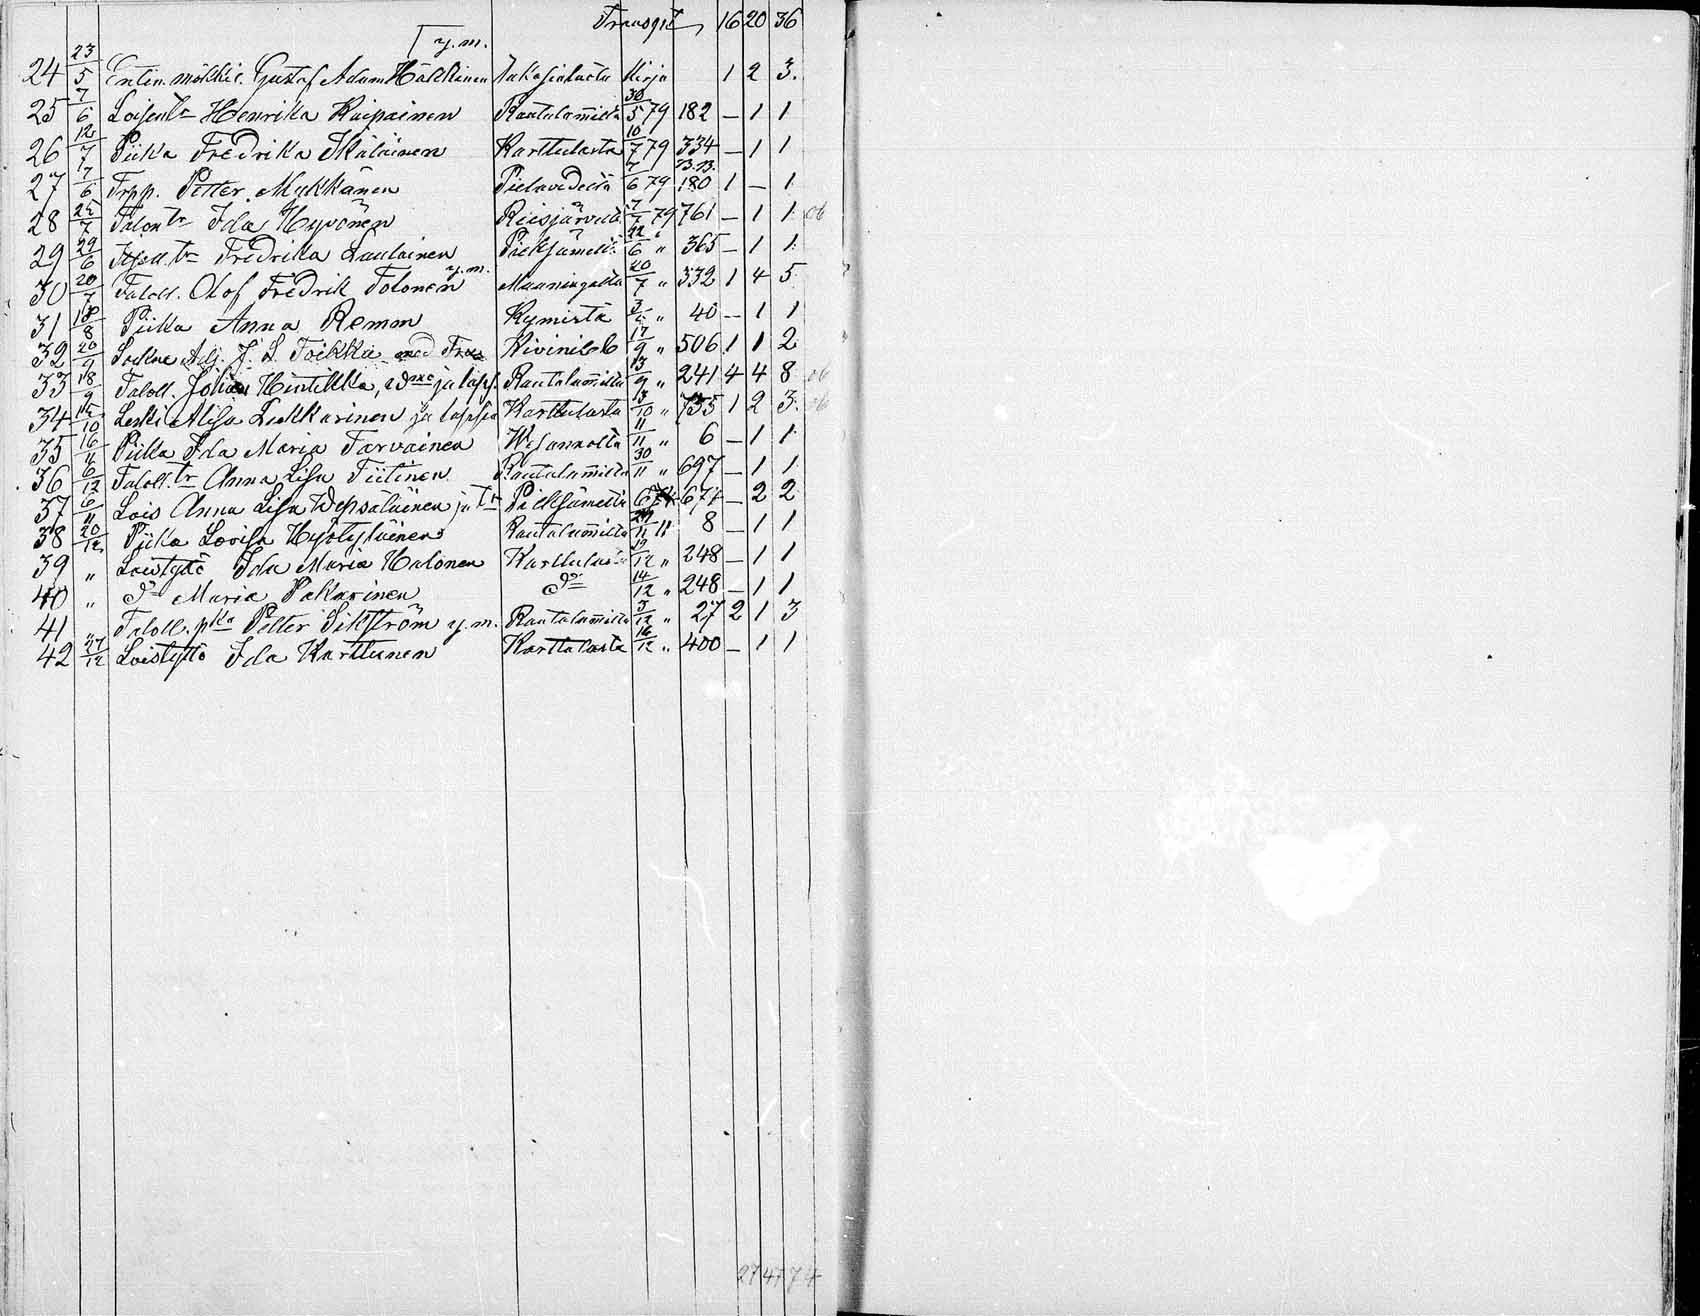 Transport 16 20 36
y.m.
24 23/5 Entin. mökki. Gustaf Adam Häkkinen Kirja 1 2 3.
25 7/6 Loisentr Henrika Ruipainen Rautalammilta 30/5 79 182 – 1 1
26 12/7 Piika Fredrika Ikäläinen Karttulasta 10/7 79 334 – 1 1
27 7/6 Trpp. Petter Mykkänen Pielavedeltä 7/6 79 180 1 – 1
28 25/7 Talontr Ida Hyvönen 7/7 79 761 – 1 1
29 29/6 tr Fredrika Laulainen Pieksämeltä 22/6 " 365 – 1 1
30 20/7 Taloll. Olof Fredrik Tolonen y.m. Maaningalta 20/7 " 332 1 4 5
31 18/8 Piika Anna Remm Kymistä " 40 – 1 1
32 20/9 Sockne Adj. J. L. Toikka med Fru Kivinebb 17/9 " 506 1 1 2
33 18/9 Taloll. Johan Hintikka, vmo ja laps. Rautalammilta 13/9 " 241 4 4 8
34 14/10 Leski Alisa Lukkarinen ja lapsia Karttulasta 13/10 " 735 1 2 3.
35 16/11 Piika Ida Maria Tarvainen Wesannolta 11/11 " 6 – 1 1
36 6/12 Taloll. tr Anna Lisa Tiitinen Rautalammilta 30/11 " 697 – 1 1
37 6/11 Lois Anna Lisa Wepsäläinen ja tr Pieksämeltä 674 – 2 2
38 20/12 Piika Lovisa Hyötyläinen Rautalammilta 8 – 1 1
39 " Loistyttö Ida Maria Halonen Karttulasta 19/12 " 248 – 1 1
40 " Do Maria Pakarinen Do 14/12 " 248 – 1 1
41 Taloll. pka Petter Sikström y.m. Rautalammilta 5/12 " 27 2 1 3
42 27/12 Loistyttö Ida Karttunen Karttulasta 16/12 " 400 – 1 1
27 47 74